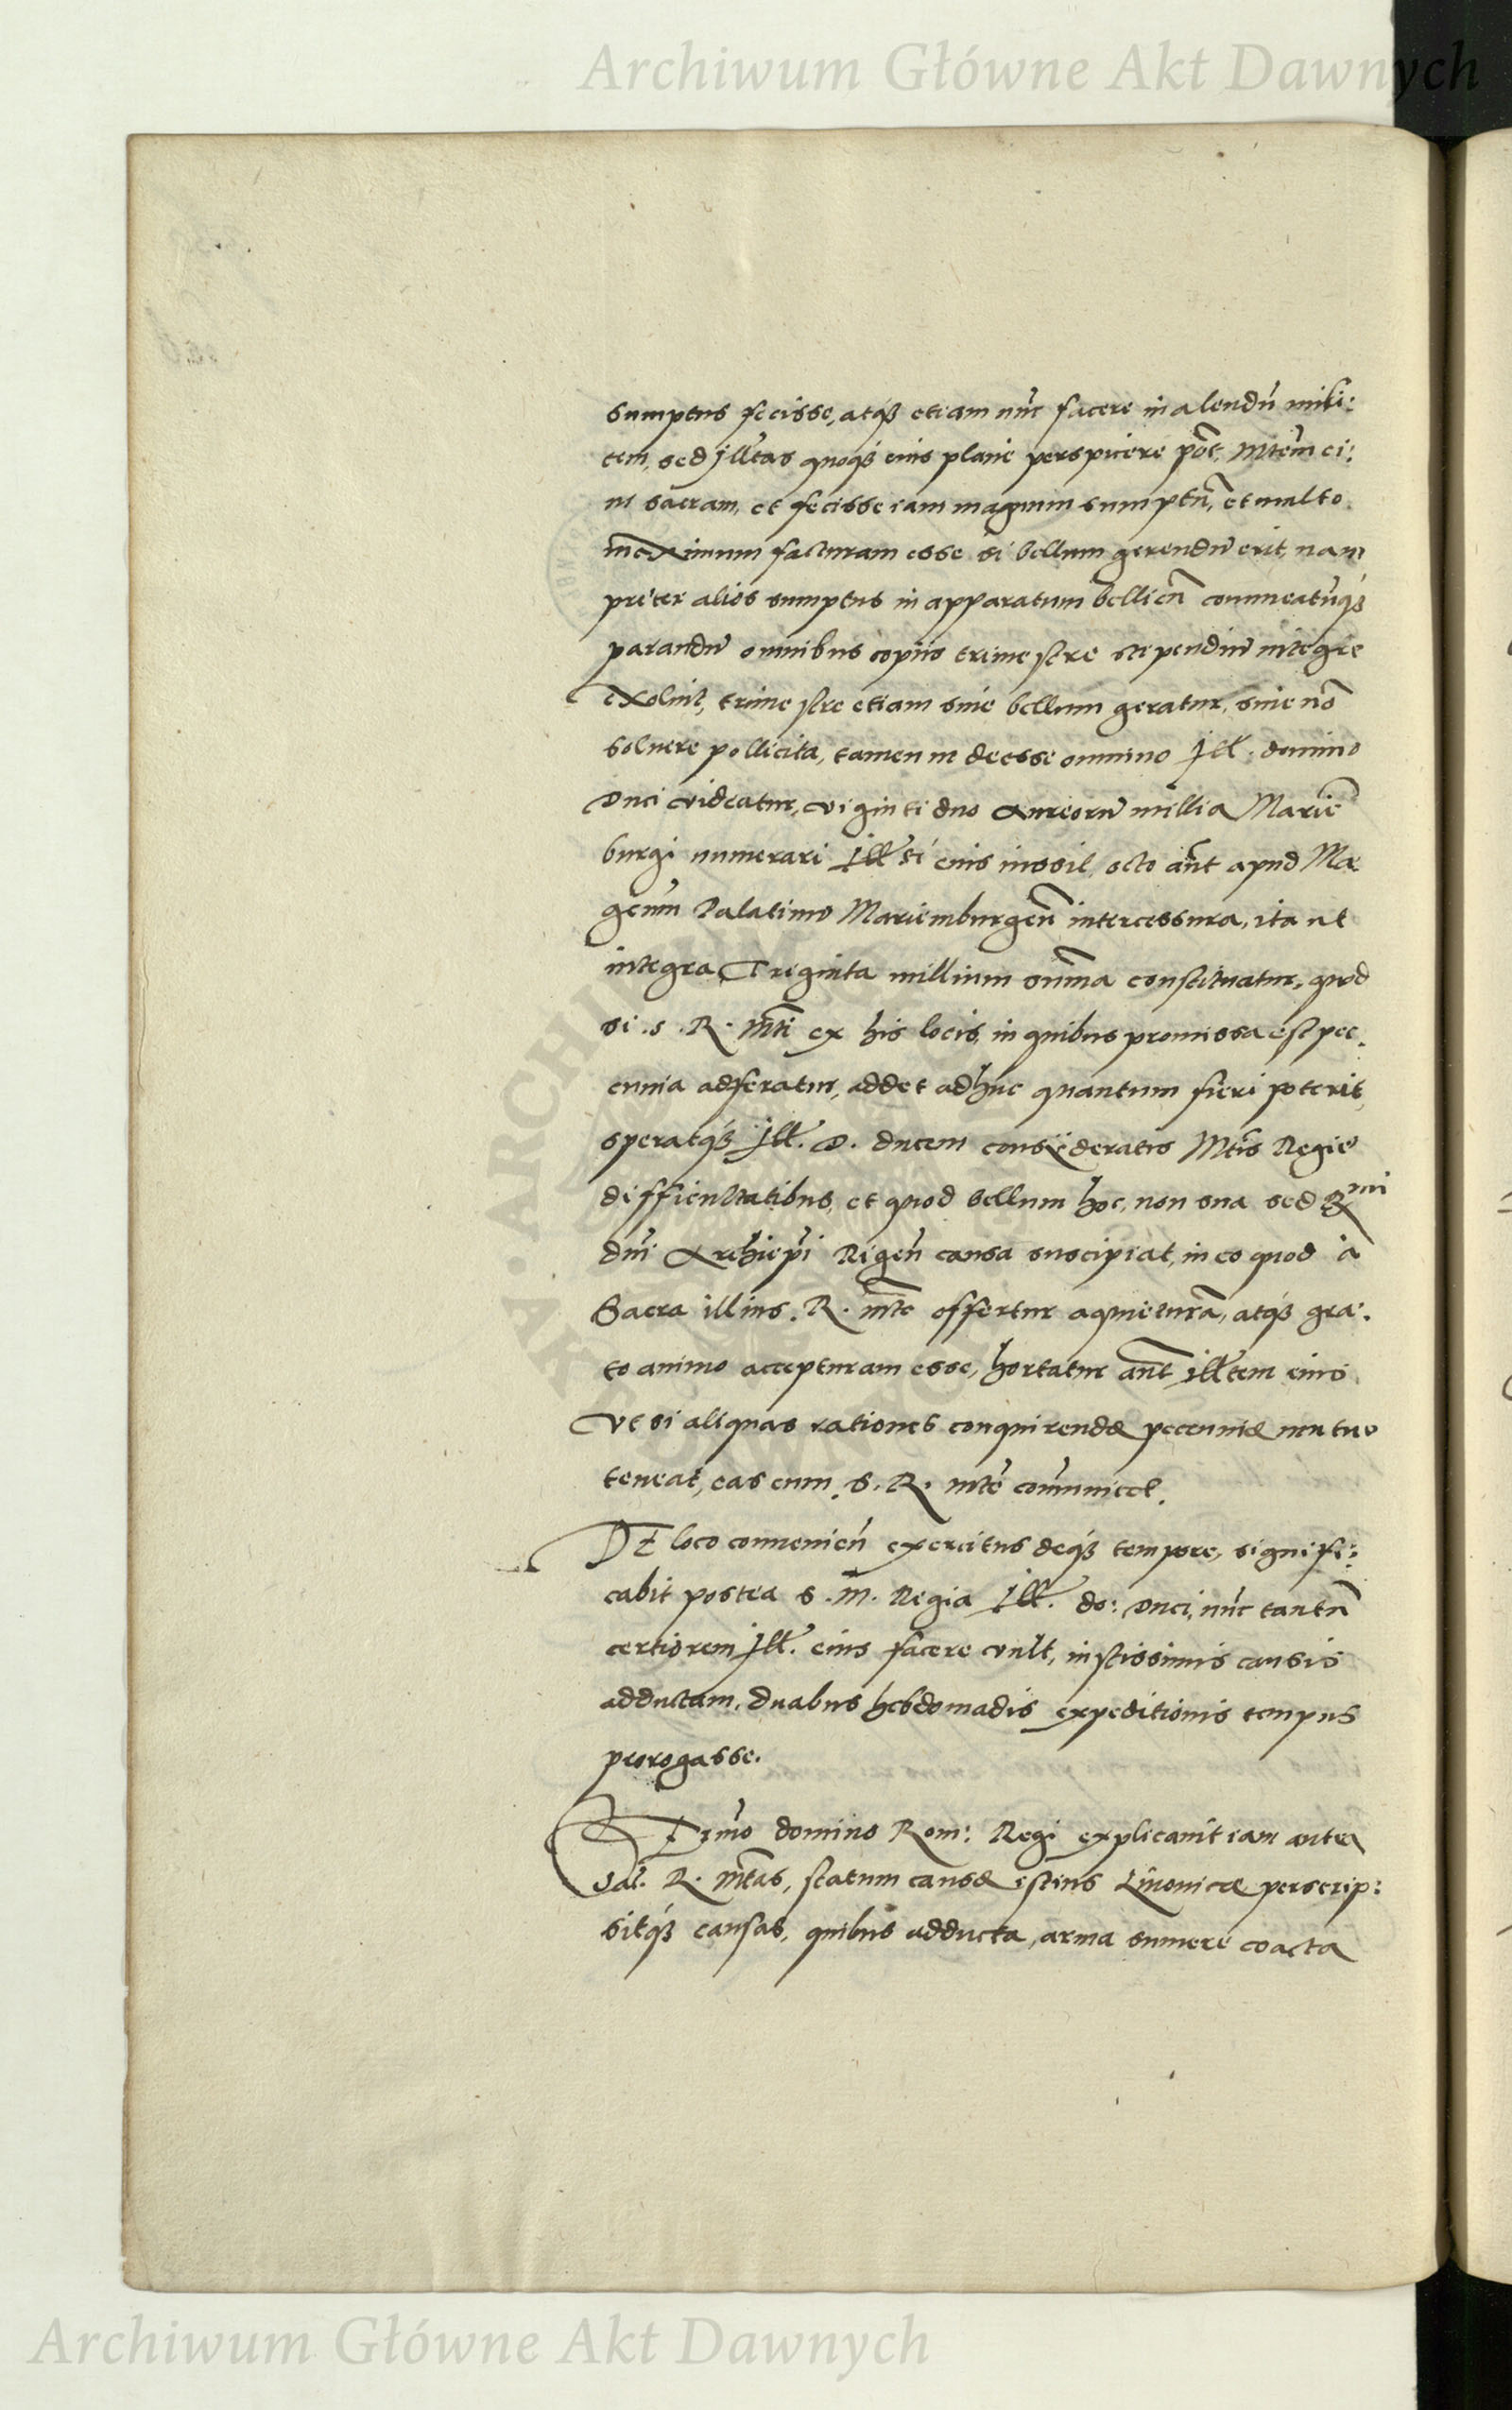 Archiwum Główne Akt Dawnych
sumptus fecisse, atq́ꝫ etiam nũc facere in alendũ mili:
tem, sed Jll̃tas quoqꝫ eius plane perspicere põt, Mtẽm ei:
us sacram, et fecisse iam magnum sumptũ, et multo
maximum facturam esse si bellum gerendũ erit, nam
preter alios sumptus in apparatum bellicũ commeatũqꝫ
parandũ omnibus copijs trimestre stipendiũ integre
exoluit, trimestre etiam siue bellum geratur, siue nõ
soluere pollicita, tamen ne deesse omnino Jll. domino
Duci videatur, viginti duo Aureorũ millia Mariẽ
burgi numerari Jll̃ti eius iussit, octo aũt apud Ma
gcũm Palatinũ Mariemburgeñ intercessura, ita ut
integra Triginta millium sum̃a constituatur, quod
si .s. R. Mt̃i ex his locis, in quibus promissa est pec
cunia adferatur, addet adhuc quantum fieri poterit,
speratq́ꝫ Jll. D. ducem consyderatis Mt̃is Regie
difficultatibus, et quod bellum hoc, non sua sed R̃mi
dñi Archiepĩ Rigeñ causa suscipiat, in eo quod à
Sacra illius. R. mt̃e offertur aquieturã, atq́ꝫ gra:
to animo accepturam esse, hortatur aũt Jll̃tem eius
Vt si aliquas rationes conquirendæ peccuniæ mutuo
teneat, eas cum. S. R. mt̃e com̃unicet.
DE loco conuenieñ exercitus deq́ꝫ tempore, signifi:
cabit postea S. M. Regia Jll. do: Duci, nũc tantũ
certiorem Jll. eius facere vult, iustissimis causis
adductam, duabus hebdomadis expeditionis tempus
prorogasse.
Sermõ domino Rom: Regi explicauit iam antea
Sac. R. Mt̃as, statum causæ istius Liuonicæ perscrip:
sitq́ꝫ causas, quibus adducta, arma sumere coacta
Archiwum Główne Akt Dawnych